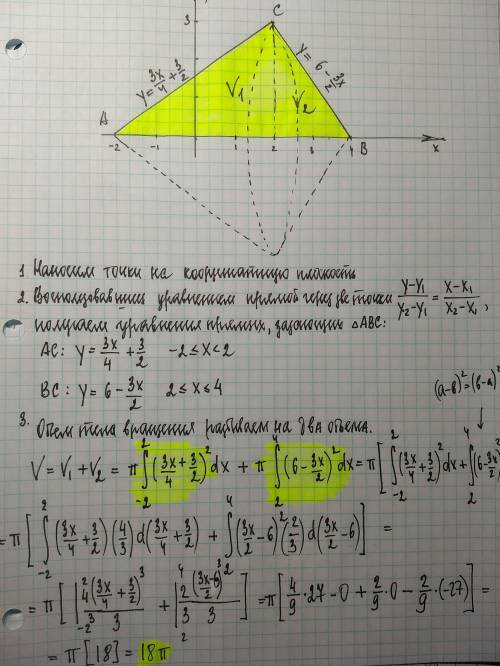 3
C
y = 3x/4 + 3/2
y = 6 - 3x/2
V₁
V₂
A
B
-2 -1 1 2 3 4 x
1. Наносим точки на координатную плоскость
2. Воспользовавшись уравнением прямой через две точки (y-y₁)/(y₂-y₁) = (x-x₁)/(x₂-x₁),
получаем уравнения прямых, задающих △ABC:
AC: y = 3x/4 + 3/2 -2 ≤ x < 2
BC: y = 6 - 3x/2 2 ≤ x ≤ 4
(a-b)² = (b-a)²
3. Объем тела вращения разбиваем на два объема.
V = V₁ + V₂ = π ∫₋₂² (3x/4 + 3/2)² dx + π ∫₂⁴ (6 - 3x/2)² dx = π[∫₋₂² (3x/4 + 3/2)² dx + ∫₂⁴ (6 - 3x/2)²
= π[∫₋₂² (3x/4 + 3/2)² (4/3) d(3x/4 + 3/2) + ∫₂⁴ (3x/2 - 6)² (2/3) d(3x/2 - 6)] =
= π[ |₋₂² 4(3x/4 + 3/2)³/(3·3) + |₂⁴ 2(3x/2 - 6)³/(3·3) ] = π[4/9 · 27 - 0 + 2/9 · 0 - 2/9 · (-27)] =
= π[18] = 18π